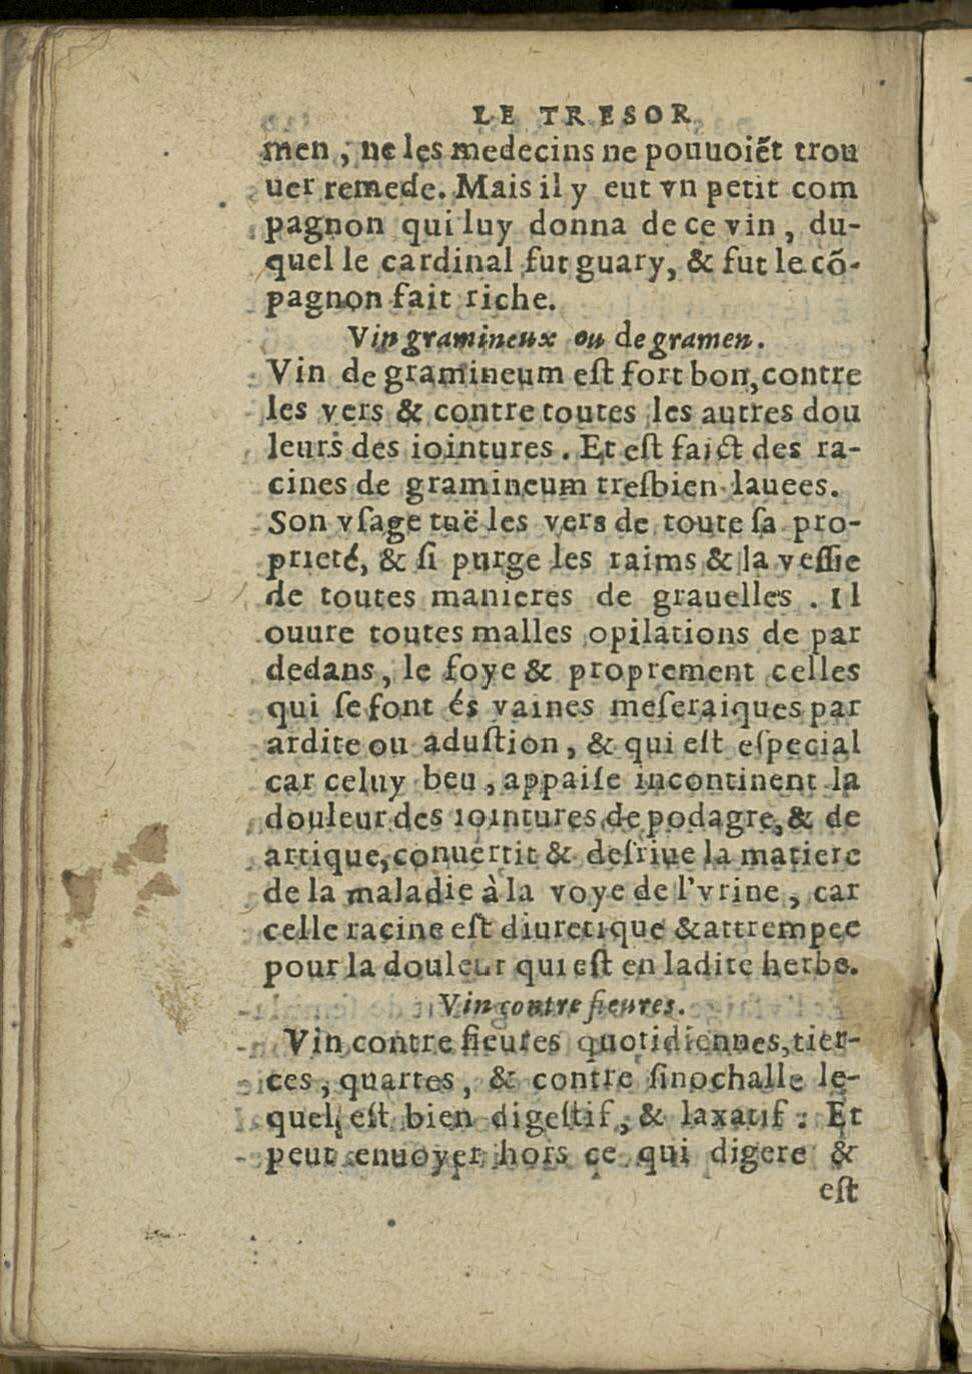 LE TRESOR
men, ne les medecins ne pouuoiẽt trou
uer remede. Mais il y eut vn petit com
pagnon qui luy donna de ce vin, du-
quel le cardinal fut guary, & fut le cõ-
pagnon fait riche.
Vin gramineux ou de gramen.
Vin de gramineum eſt fort bon, contre
les vers & contre toutes les autres dou
leurs des iointures. Et eſt faict des ra-
cines de gramineum treſbien lauees.
Son vſage tuë les vers de toute ſa pro-
prieté, & ſi purge les raims & la veſſie
de toutes manieres de grauelles. Il
ouure toutes malles opilations de par
dedans, le foye & proprement celles
qui ſe font és vaines meſeraiques par
ardite ou aduſtion, & qui eſt eſpecial
car celuy beu, appaiſe incontinent la
douleur des iointures, de podagre, & de
artique, conuertit & deſriue la matiere
de la maladie à la voye de l'vrine, car
celle racine eſt diuretique & attrempee
pour la douleur qui eſt en ladite herbe.
Vin contre fieures.
Vin contre fieures quotidiennes, tier-
ces, quartes, & contre ſinochalle le-
quel eſt bien digeſtif, & laxatif: Et
peut enuoyer hors ce qui digere &
eſt